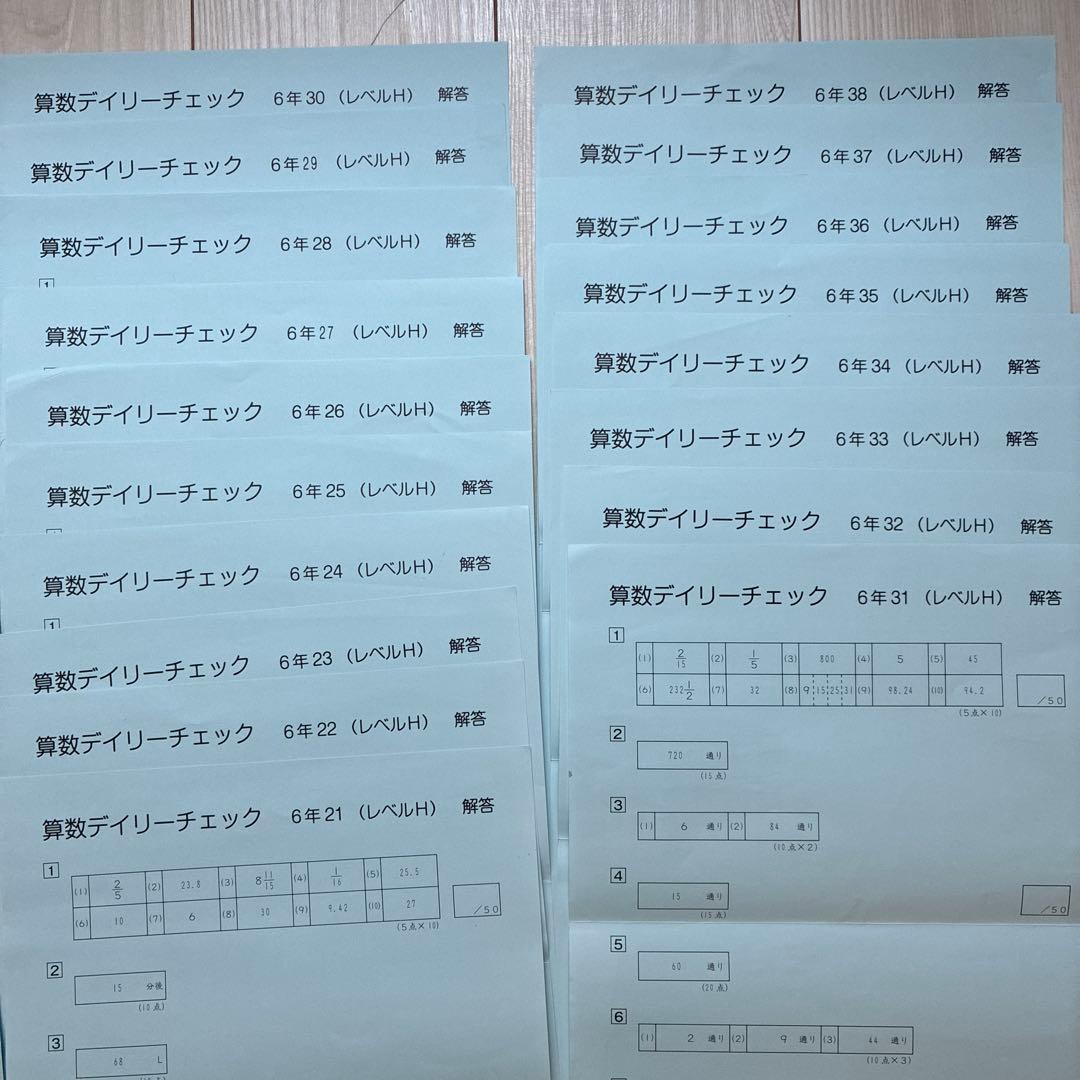 算数デイリーチェック 6年30（レベルH） 解答
算数デイリーチェック 6年29（レベルH） 解答
算数デイリーチェック 6年28（レベルH） 解答
1
算数デイリーチェック 6年27（レベルH） 解答
算数デイリーチェック 6年26（レベルH） 解答
算数デイリーチェック 6年25（レベルH） 解答
算数デイリーチェック 6年24（レベルH） 解答
1
算数デイリーチェック 6年23（レベルH） 解答
算数デイリーチェック 6年22（レベルH） 解答
算数デイリーチェック 6年21（レベルH） 解答
1
(1) 2/5 (2) 23.8 (3) 8 11/15 (4) 1/16 (5) 25.5
(6) 10 (7) 6 (8) 30 (9) 9.42 (10) 27
／50
(5点×10)
2
15 分後
(10点)
3
68 L
算数デイリーチェック 6年38（レベルH） 解答
算数デイリーチェック 6年37（レベルH） 解答
算数デイリーチェック 6年36（レベルH） 解答
算数デイリーチェック 6年35（レベルH） 解答
算数デイリーチェック 6年34（レベルH） 解答
算数デイリーチェック 6年33（レベルH） 解答
算数デイリーチェック 6年32（レベルH） 解答
算数デイリーチェック 6年31（レベルH） 解答
1
(1) 2/15 (2) 1/5 (3) 800 (4) 5 (5) 45
(6) 232 1/2 (7) 32 (8) 9 15 25 31 (9) 98.24 (10) 94.2
／50
(5点×10)
2
720 通り
(15点)
3
(1) 6 通り (2) 84 通り
(10点×2)
4
15 通り
(15点)
／50
5
60 通り
(20点)
6
(1) 2 通り (2) 9 通り (3) 44 通り
(10点×3)